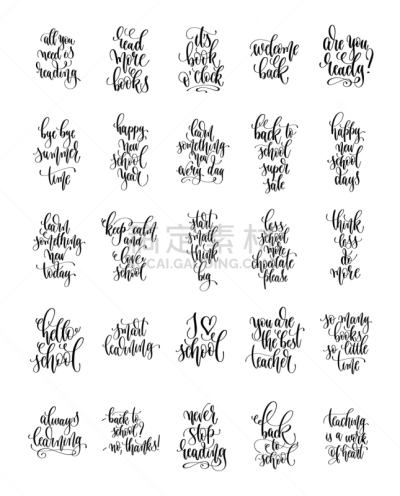 all you
need is
reading
read
more
books
it's
book
o'clock
welcome
back
are you
ready?
bye bye
summer
time
happy
new
school
year
learn
something
new
every day
back to
school
super
sale
happy
new
school
days
learn
something
new
today
keep calm
and
love
school
start
small
think
big
less
school
more
chocolate
please
think
less
do
more
hello
school
smart
learning
I
school
you are
the best
teacher
so many
books
so little
time
always
learning
back to
school?
no, thanks!
never
stop
reading
back
to
school
teaching
is a work
of heart